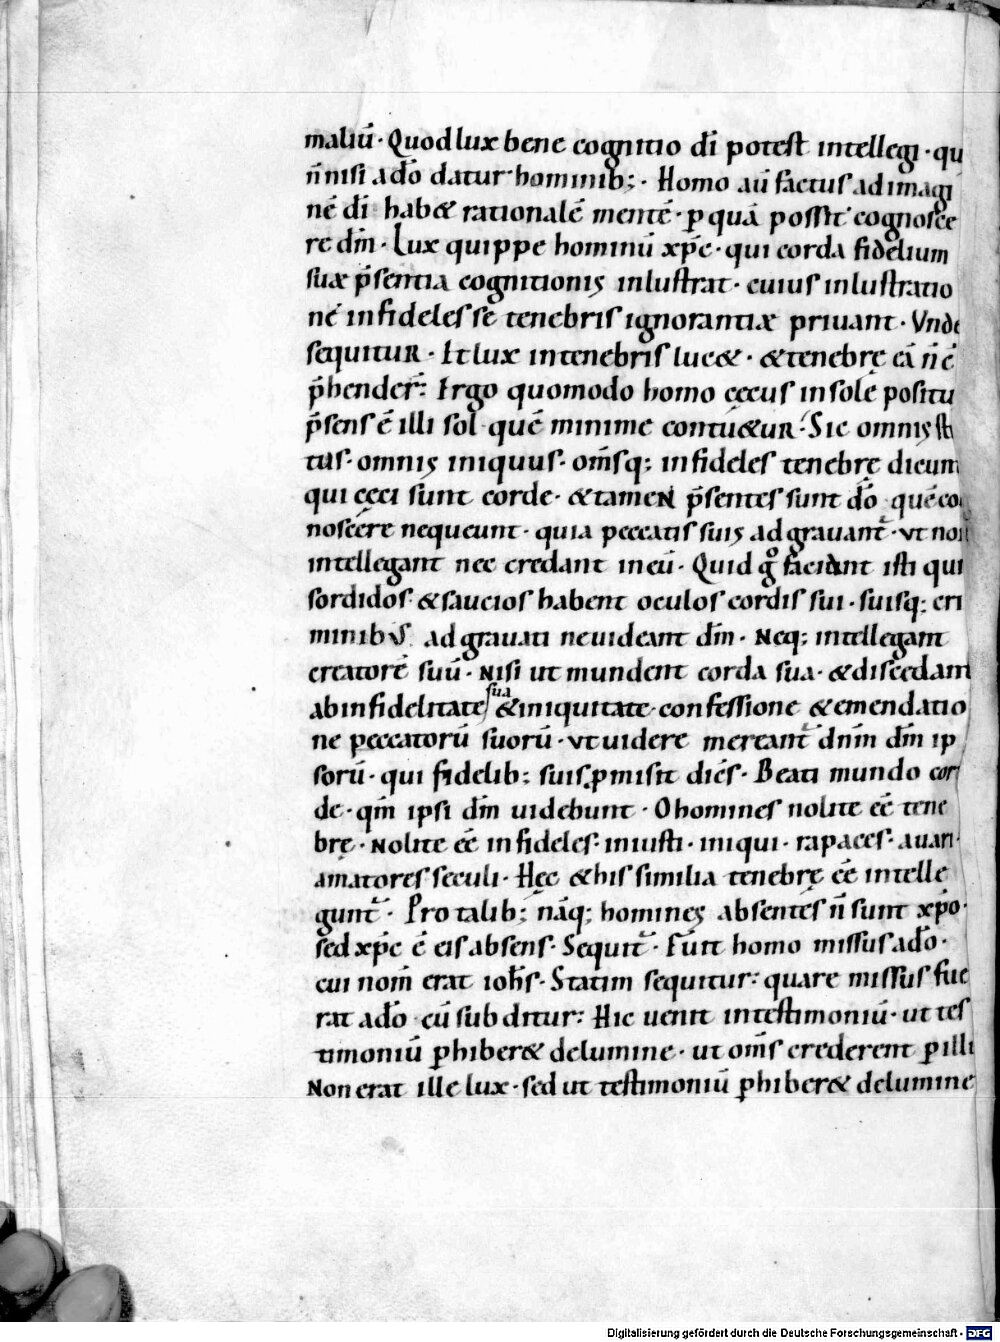 maliū · Quod lux bene cognitio dī potest intellegi · qu
n̄ nisi a dō datur hominib; · Homo aū factus ad imagi
nē dī hab& rationalē mentē · p quā possit cognosce
re dm̄ · Lux quippe hominū xp̄c · qui corda fidelium
suæ p̄sentia cognitionis inlustrat · cuius inlustratio
nē infideles se tenebris ignorantiæ priuant · Vnde
sequitur · Et lux in tenebris luc& · & tenebrę eā n̄ cō
p̄hender̄: Ergo quomodo homo cęcus in sole positu
p̄sens ē illi sol quē minime contu&ur · Sic omnis st
tus · omnis iniquus · om̄sq; infideles tenebrę dicunt
qui cęci sunt corde · & tamen p̄sentes sunt dō quē co
noscere nequeunt · quia peccatis suis adgrauant̄ · vt non
intellegant nec credant in eū · Quid g̊ faciant isti qui
sordidos & saucios habent oculos cordis sui · suisq; cri
minibus adgrauati ne uideant dm̄ · Neq; intellegant
creatorē suū · Nisi ut mundent corda sua · & discedant
ab infidelitate sua & iniquitate · confessione & emendatio
ne peccatorū suorū · vt uidere mereant̄ dnm̄ dm̄ ip
sorū · qui fidelib; suis p̄misit dicēs · Beati mundo cor
de · qm̄ ipsi dm̄ uidebunt · O homines nolite eē tene
brę · Nolite eē infideles · iniusti · iniqui · rapaces · auari ·
amatores seculi · Hęc & his similia tenebrę eē intelle
gunt̄ · Pro talib; nāq; homines absentes n̄ sunt xp̄o ·
sed xp̄c ē eis absens · Sequit̄ · Fuit homo missus a dō ·
cui nom̄ erat ioh̄s · Statim sequitur: quare missus fue
rat a dō cū subditur: Hic uenit in testimoniū · ut tes
timoniū p̱hiber& de lumine · ut om̄s crederent p̱ illū
Non erat ille lux · sed ut testimoniū p̱hiber& de lumine
Digitalisierung gefördert durch die Deutsche Forschungsgemeinschaft - DFG